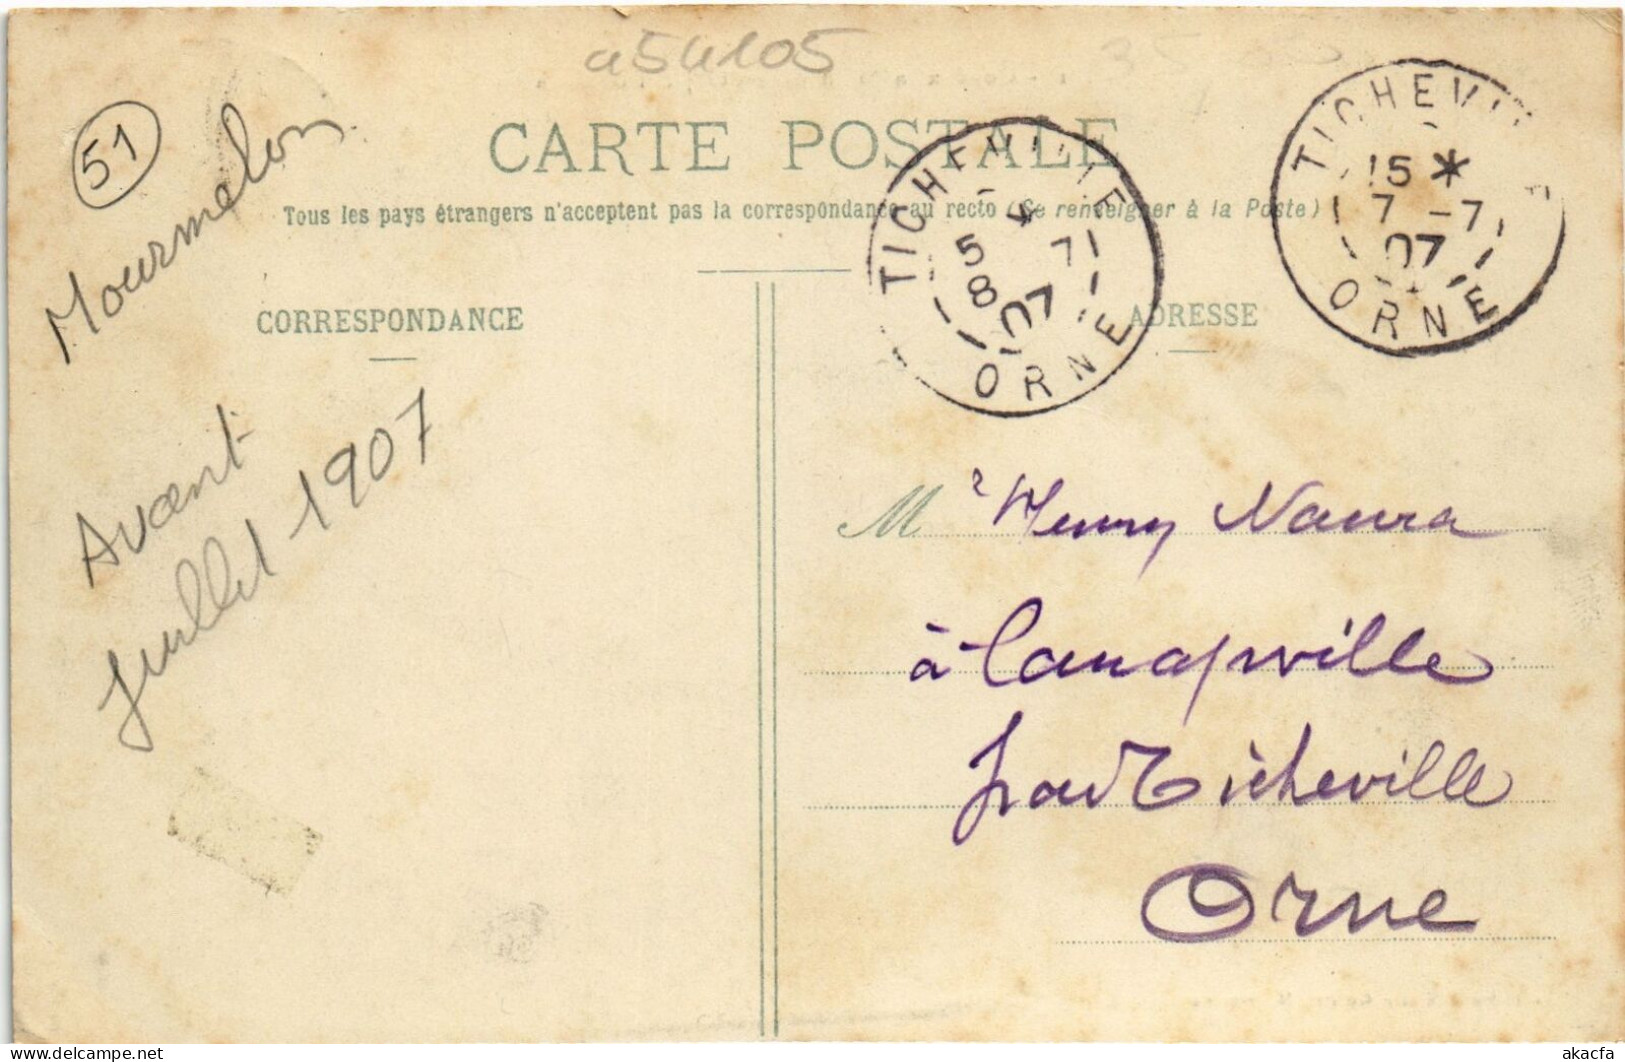 a54105
51
Mourmelon
CARTE POSTALE
Tous les pays étrangers n'acceptent pas la correspondance au recto (Se renseigner à la Poste)
TICHEVILLE
5 *
8 7
07
ORNE
TICHEVI
15 *
7 - 7
07
ORNE
CORRESPONDANCE
ADRESSE
Avant
Juillet 1907
M r Henry
à Canapville
par Ticheville
Orne
delcampe.net
akacfa